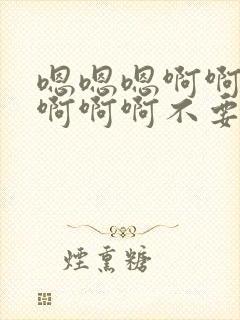 嗯嗯嗯啊啊
啊啊啊不要
煙熏糖